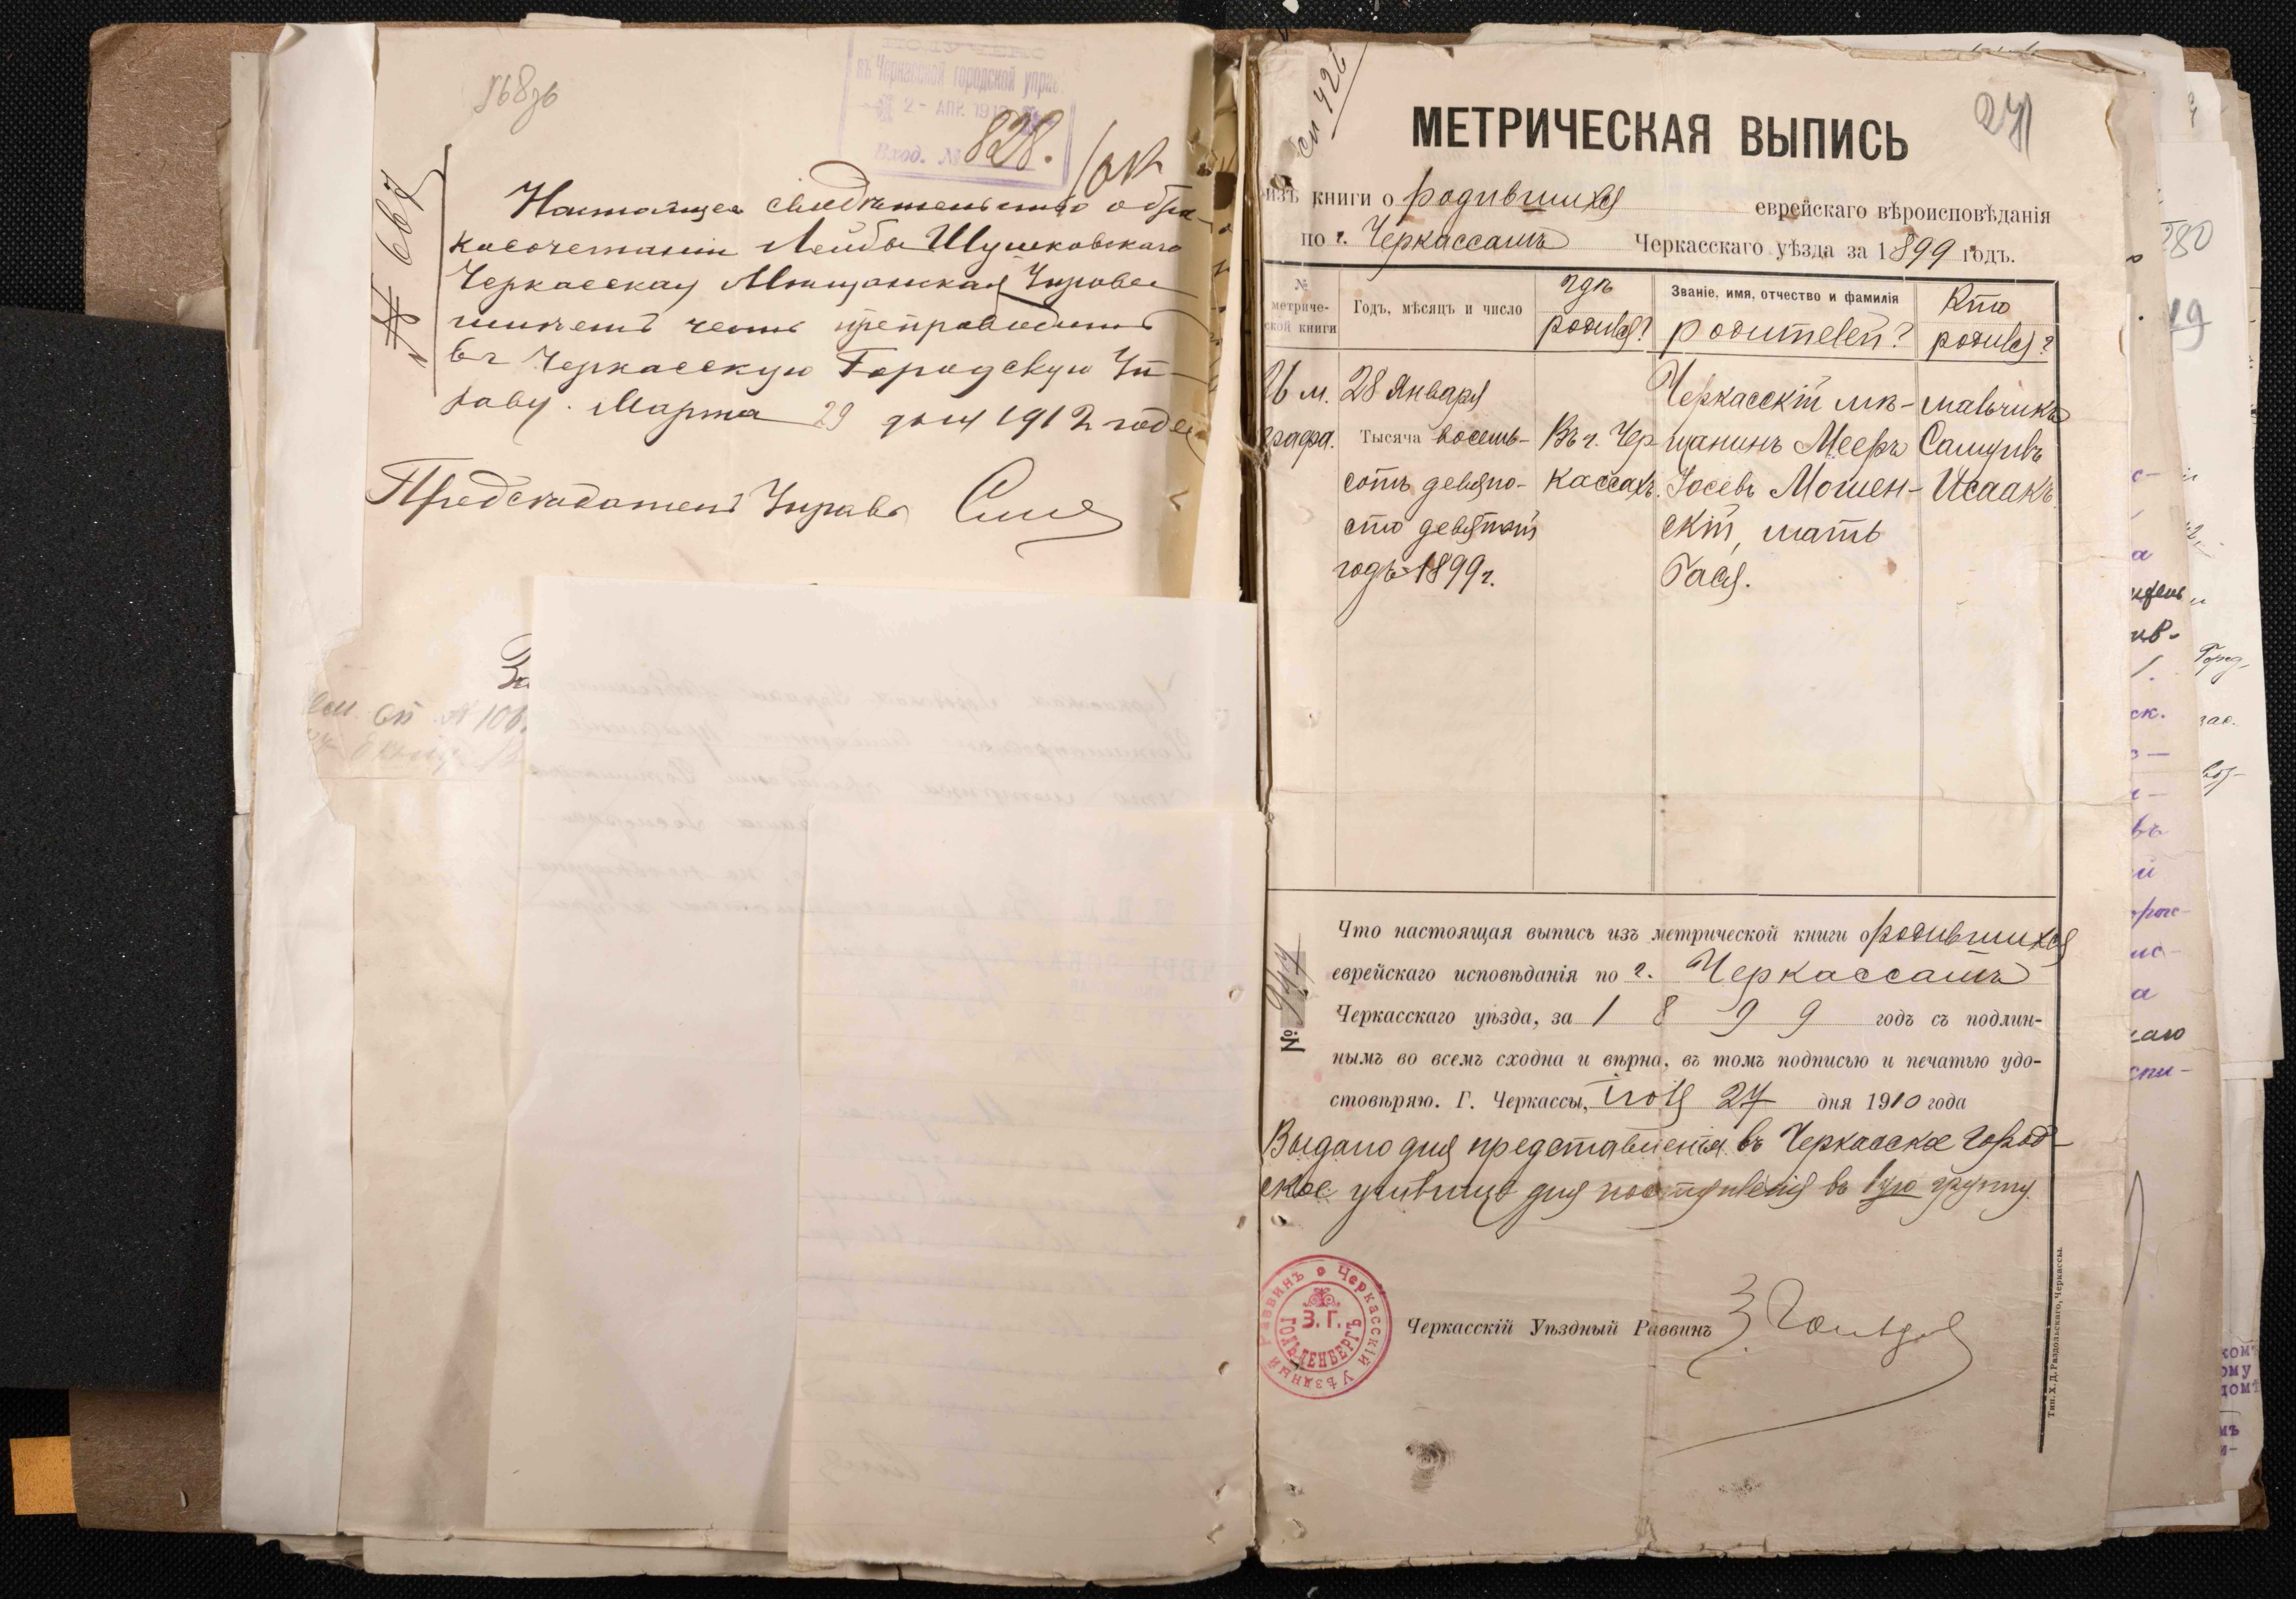 въ Черкасской городской управ
2 - АПР. 1912
Вход. № 828.
Настоящее свидетельство о бра-
косочетании Лейбы Шушковскаго
Черкасская Мещанская Управа
имѣетъ честь препроводить
въ Черкасскую Городскую Уп-
раву. Марта 29 дня 1912 года
Предсѣдатель Управы
№ 106.
271
МЕТРИЧЕСКАЯ ВЫПИСЬ
изъ книги о родившихся еврейскаго вѣроисповѣданія
по г. Черкассамъ Черкасскаго уѣзда за 1899 годъ.
№ метриче-ской книги
Годъ, мѣсяцъ и число
гдѣ родился?
Званіе, имя, отчество и фамилія родителей?
Кто родился?
26 м. 28 Января Черкасскій мѣ- мальчикъ
графа. Тысяча восемь- Въ г. Чер- щанинъ Мееръ Самуилъ
сотъ девяно- кассахъ. Іосевъ Мошен- Исаакъ.
сто девятый скій, мать
годъ 1899 г. Бася.
№ 947
Что настоящая выпись изъ метрической книги о родившихся
еврейскаго исповѣданія по г. Черкассамъ
Черкасскаго уѣзда, за 1899 годъ съ подлин-
нымъ во всемъ сходна и вѣрна, въ томъ подписью и печатью удо-
стовѣряю. Г. Черкассы, Іюля 27 дня 1910 года
Выдано для представленія въ Черкасское город-
ское училище для поступленія въ 1ую группу.
Черкасскій Уѣздный Раввинъ
З. Г.
ГОЛЬДЕНБЕРГЪ
Черкасскій Уѣздный Раввинъ З. Гольд
Тип. Х. Д. Раздольскаго, Черкассы.
280